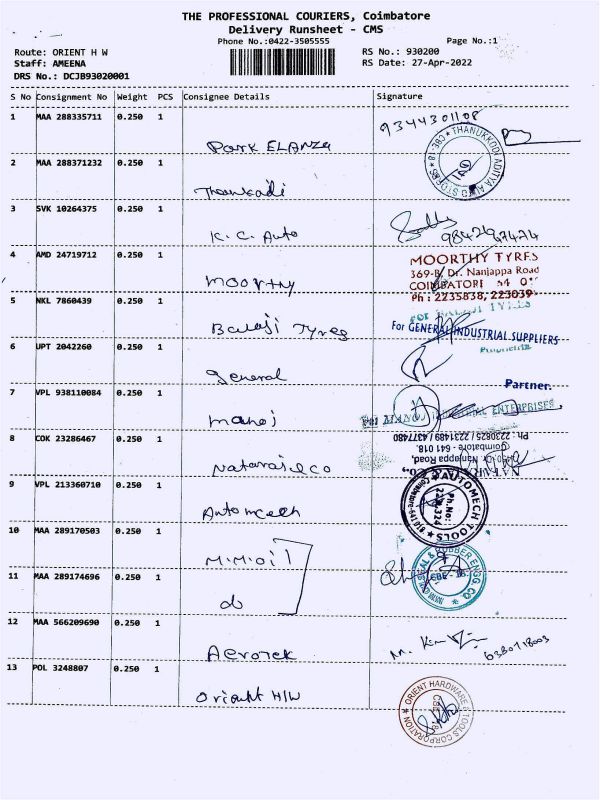 THE PROFESSIONAL COURIERS, Coimbatore
Delivery Runsheet - CMS
Phone No.:0422-3505555
Page No.:1
Route: ORIENT H W
RS No.: 930200
Staff: AMEENA
RS Date: 27-Apr-2022
DRS No.: DCJB93020001
S No Consignment No Weight PCS Consignee Details Signature
1 MAA 288335711 0.250 1
Park ELANZA
9344301108
THANUKKODI ADITYA AUTO STORES * CBE-18 *
2 MAA 288371232 0.250 1
3 SVK 10264375 0.250 1
K.C. Auto
9842497474
4 AMD 24719712 0.250 1
Moorthy
MOORTHY TYRES
369-B, Dr. Nanjappa Road
COIMBATORE
Ph : 2235838, 223039
5 NKL 7860439 0.250 1
Balaji Tyres
For GENERAL INDUSTRIAL SUPPLIERS
6 UPT 2042260 0.250 1
General
Partner.
7 VPL 938110084 0.250 1
Manoj
For MANOJ INDUSTRIAL ENTERPRISES
8 COK 23286467 0.250 1
Nataraj & Co
Ph : 2230825 / 2231489 / 4377480
Coimbatore - 641 018.
Nanjappa Road,
9 VPL 213360710 0.250 1
Automech
AUTOMECH TOOLS
Ph.No:
10 MAA 289170503 0.250 1
M.M.oil
11 MAA 289174696 0.250 1
do
SEAL & RUBBER ENGG. CO
CBE - 18
12 MAA 566209690 0.250 1
Aerotek
6380718003
13 POL 3248807 0.250 1
Orient H/W
ORIENT HARDWARE & TOOLS CORPORATION